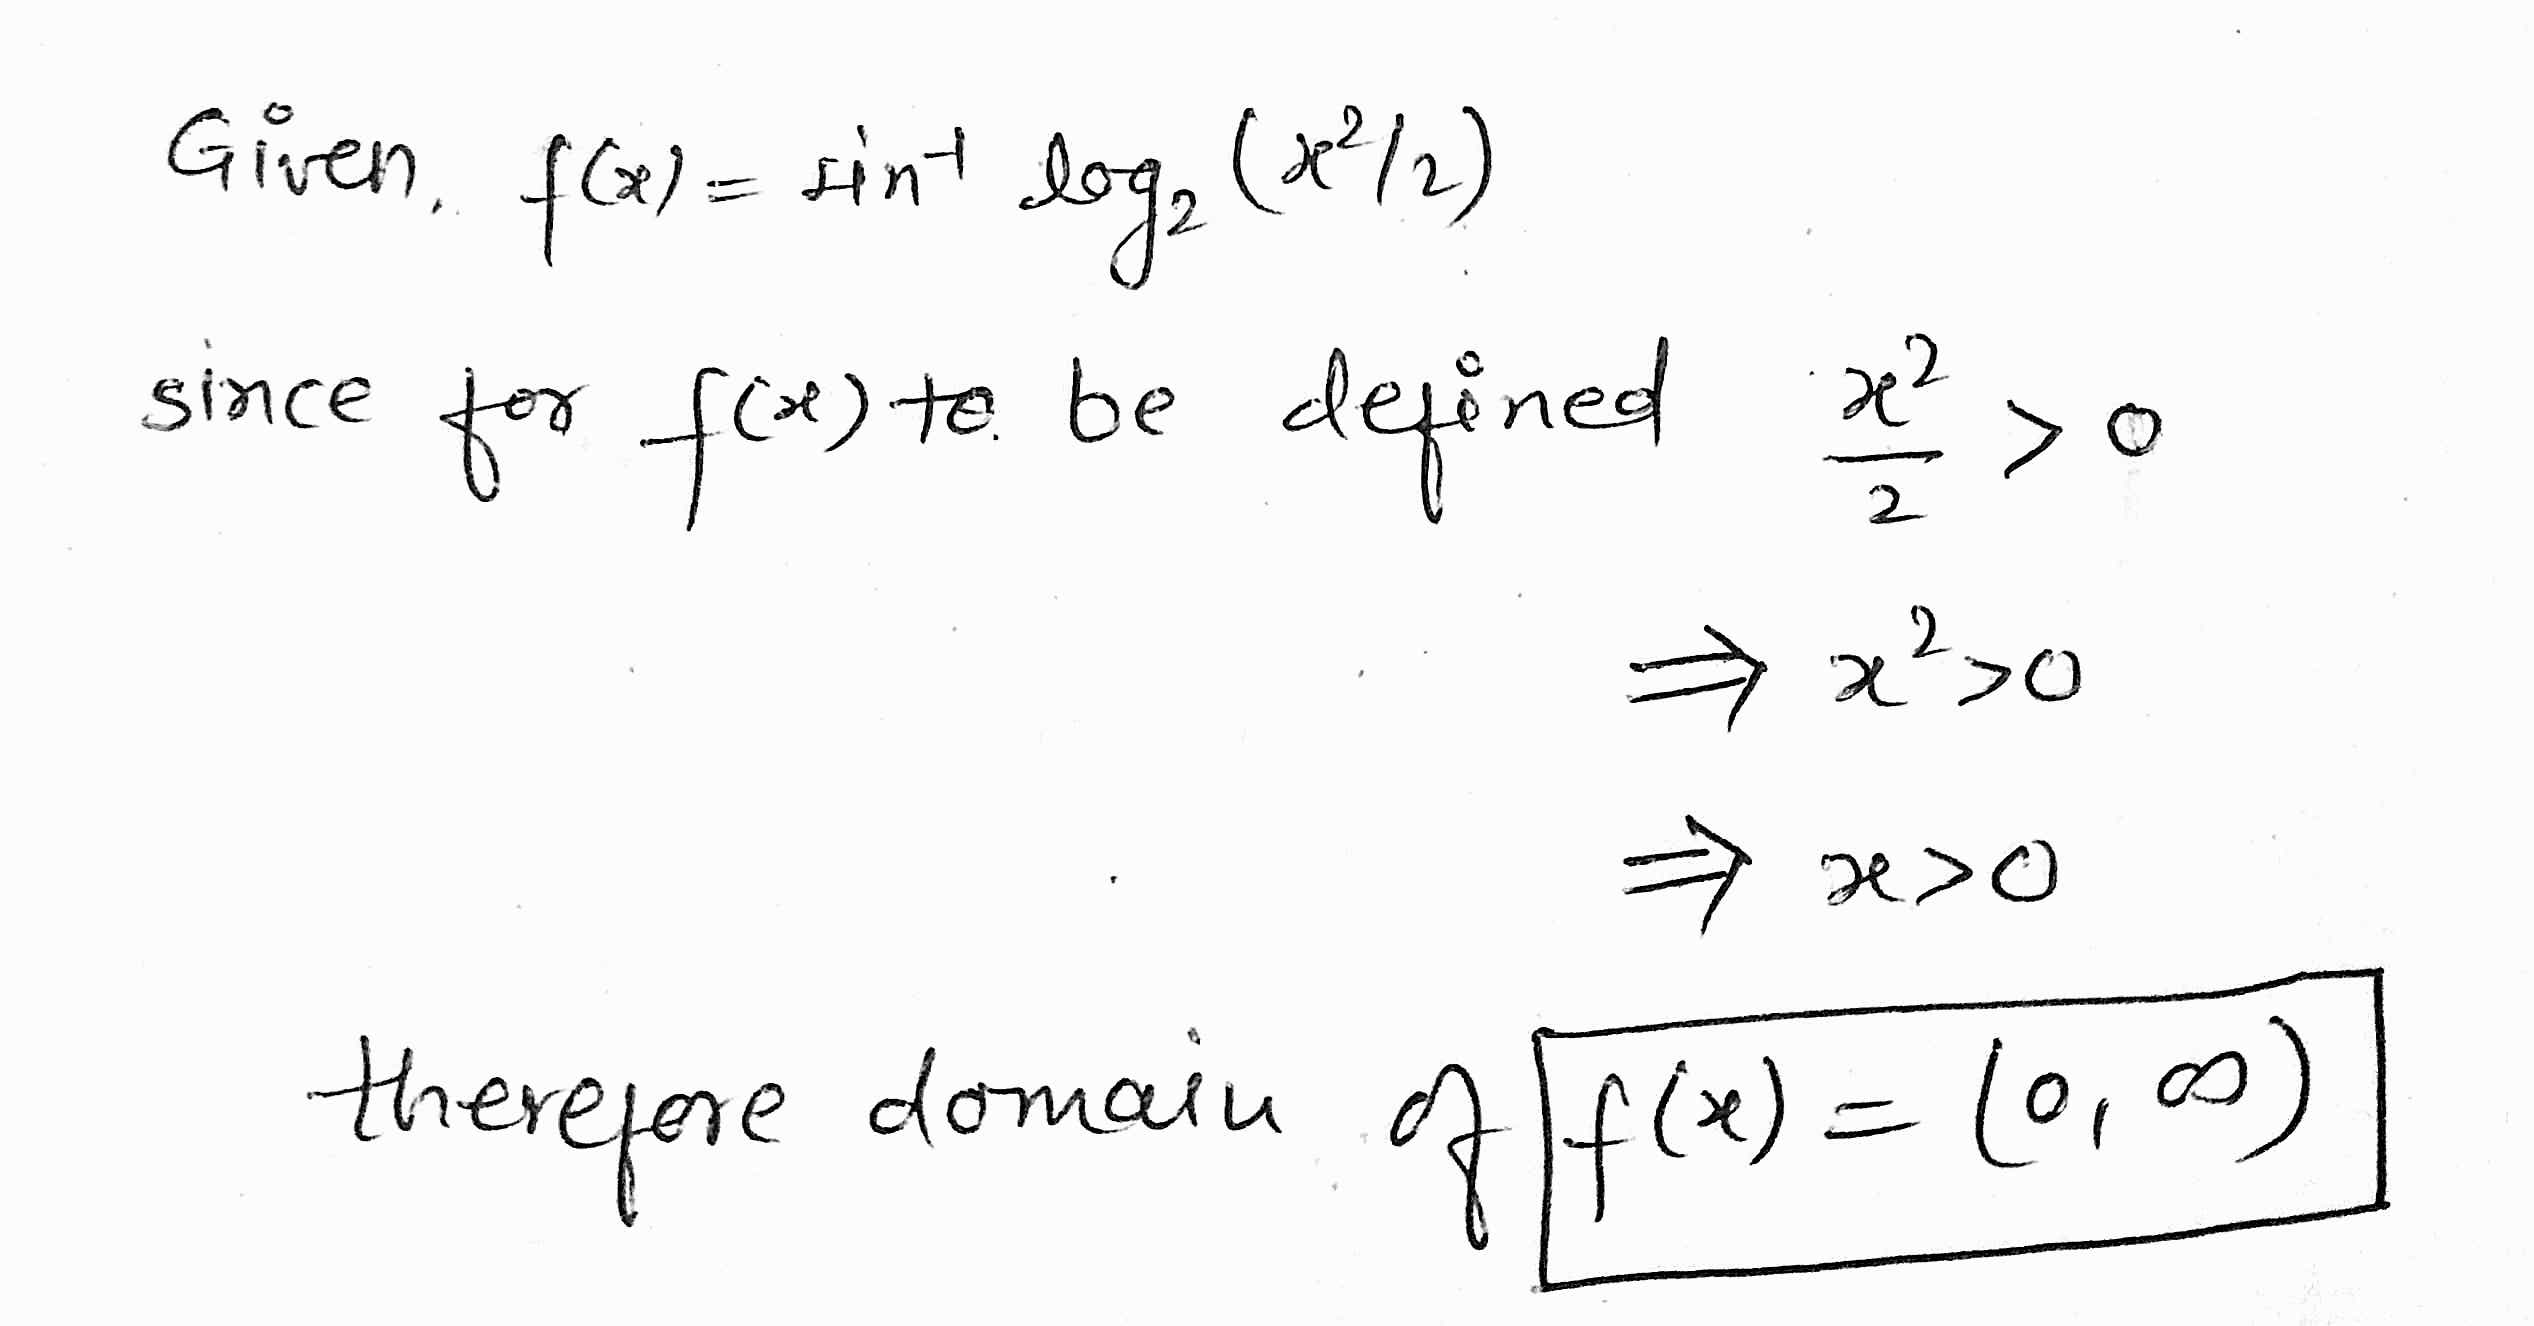 Given, f(x) = sin⁻¹ log₂ (x²/2)
since for f(x) to be defined x²/2 > 0
⇒ x² > 0
⇒ x > 0
therefore domain of f(x) = (0, ∞)